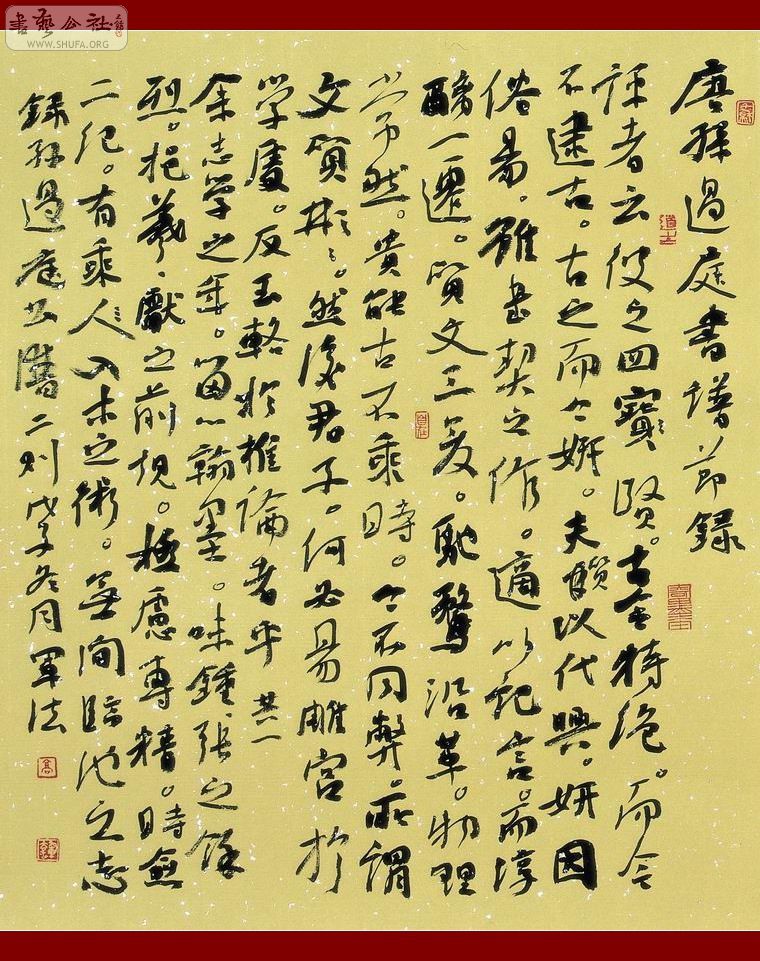 書藝公社
WWW.SHUFA.ORG
唐孫過庭書譜節録
評者云彼之四寶賢。古今特绝。而今
不逮古。古之而今妍。夫質以代興。妍因
俗易。雖書契之作。適以記言。而淳
醨一遷。質文三變。馳鶩沿革。物理
常然。貴能古不乖時。今不同弊。所謂
文質彬彬。然後君子。何必易雕宮於
處。反玉輅於椎輪者乎 其一
余志學之年。留心翰墨。味鍾張之餘
烈。挹羲、獻之前規。極慮專精。時逾
二紀。有乖入木之術。無間臨池之志
録孫過庭二则戊子冬月軍法